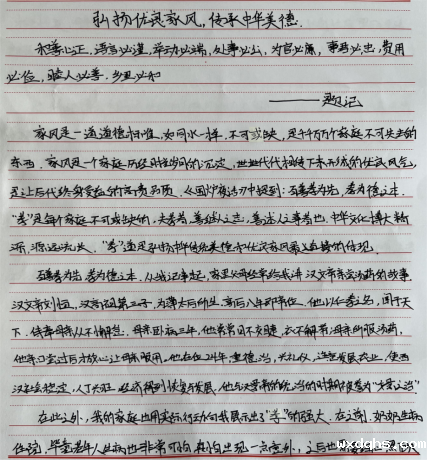 弘扬优良家风，传承中华美德.
存善心正，语言必谨，举动必端，处事必公，为官必廉，事君必忠，费用
必俭，睦人必善，乡里必和
——题记
家风是一道道德标准，如同水一样，不可或缺，是千千万万个家庭不可失去的
东西，家风是一个家庭历经时间的沉淀，世世代代相传下来形成的优良风气，
是让后代终身受益的高贵品质，《围炉夜话》中提到：百善孝为先，孝为德之本，
"孝"是每个家庭不可或缺的，夫孝者，善继人之志，善述人之事者也，中华文化博大精
深，源远流长，"孝"道是弘扬中华传统美德和优良家风最直接的体现.
百善孝为先，孝为德之本，从我记事起，家里父母经常给我讲汉文帝亲尝汤药的故事
汉文帝刘恒，汉高祖第三子，为薄太后所生，高后八年即帝位，他以仁孝之名，闻于天
下，侍奉母亲从不懈怠，母亲卧病三年，他常常目不交睫，衣不解带；母亲所服汤药，
他亲口尝过后才放心让母亲服用，他在位24年，重德治，兴礼仪，注意发展农业，使西
汉社会稳定，人丁兴旺，经济得到恢复与发展，他与汉景帝的统治时期被誉为"文景之治"
在此之外，我的家庭也用实际行动向我展示出了"孝"的强大，
住院，毕竟老年人生病也非常可怕，真怕出现一点意外，
wxdqhs.com